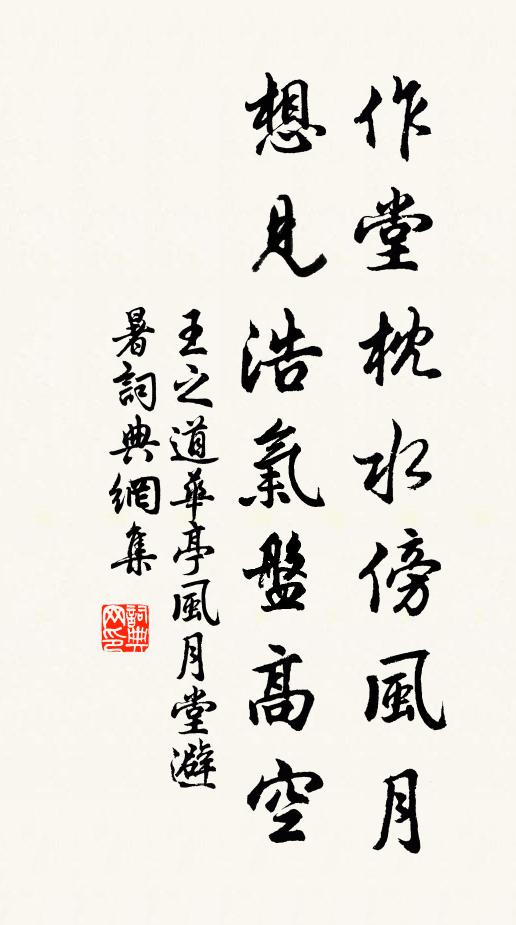 作堂枕水傍風月
想見浩氣盤高空
王之道華亭風月堂避
暑詞典網集
詞典网印